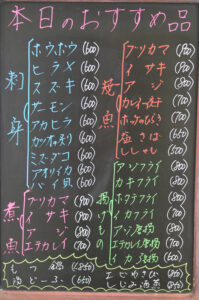 本日のおすすめ品
刺身
ホウボウ (600)
ヒラメ (600)
スズキ (600)
サーモン (600)
アカヒラ (600)
カツオたたき (600)
ミズダコ (600)
アオリイカ (600)
バイ貝 (600)
煮魚
ブリカマ (900)
イサキ (900)
アジ (800)
エテカレイ (700)
焼魚
ブリカマ
イサキ
アジ (800)
カレイ一夜干
ホッケのひらき
塩さば (600)
ししゃも (500)
揚げもの
アジフライ (800)
カキフライ (800)
ホタテフライ (800)
イカフライ (700)
アジ唐揚 (800)
エテカレイ唐揚 (700)
イカ唐揚 (700)
もつ鍋
湯どーふ